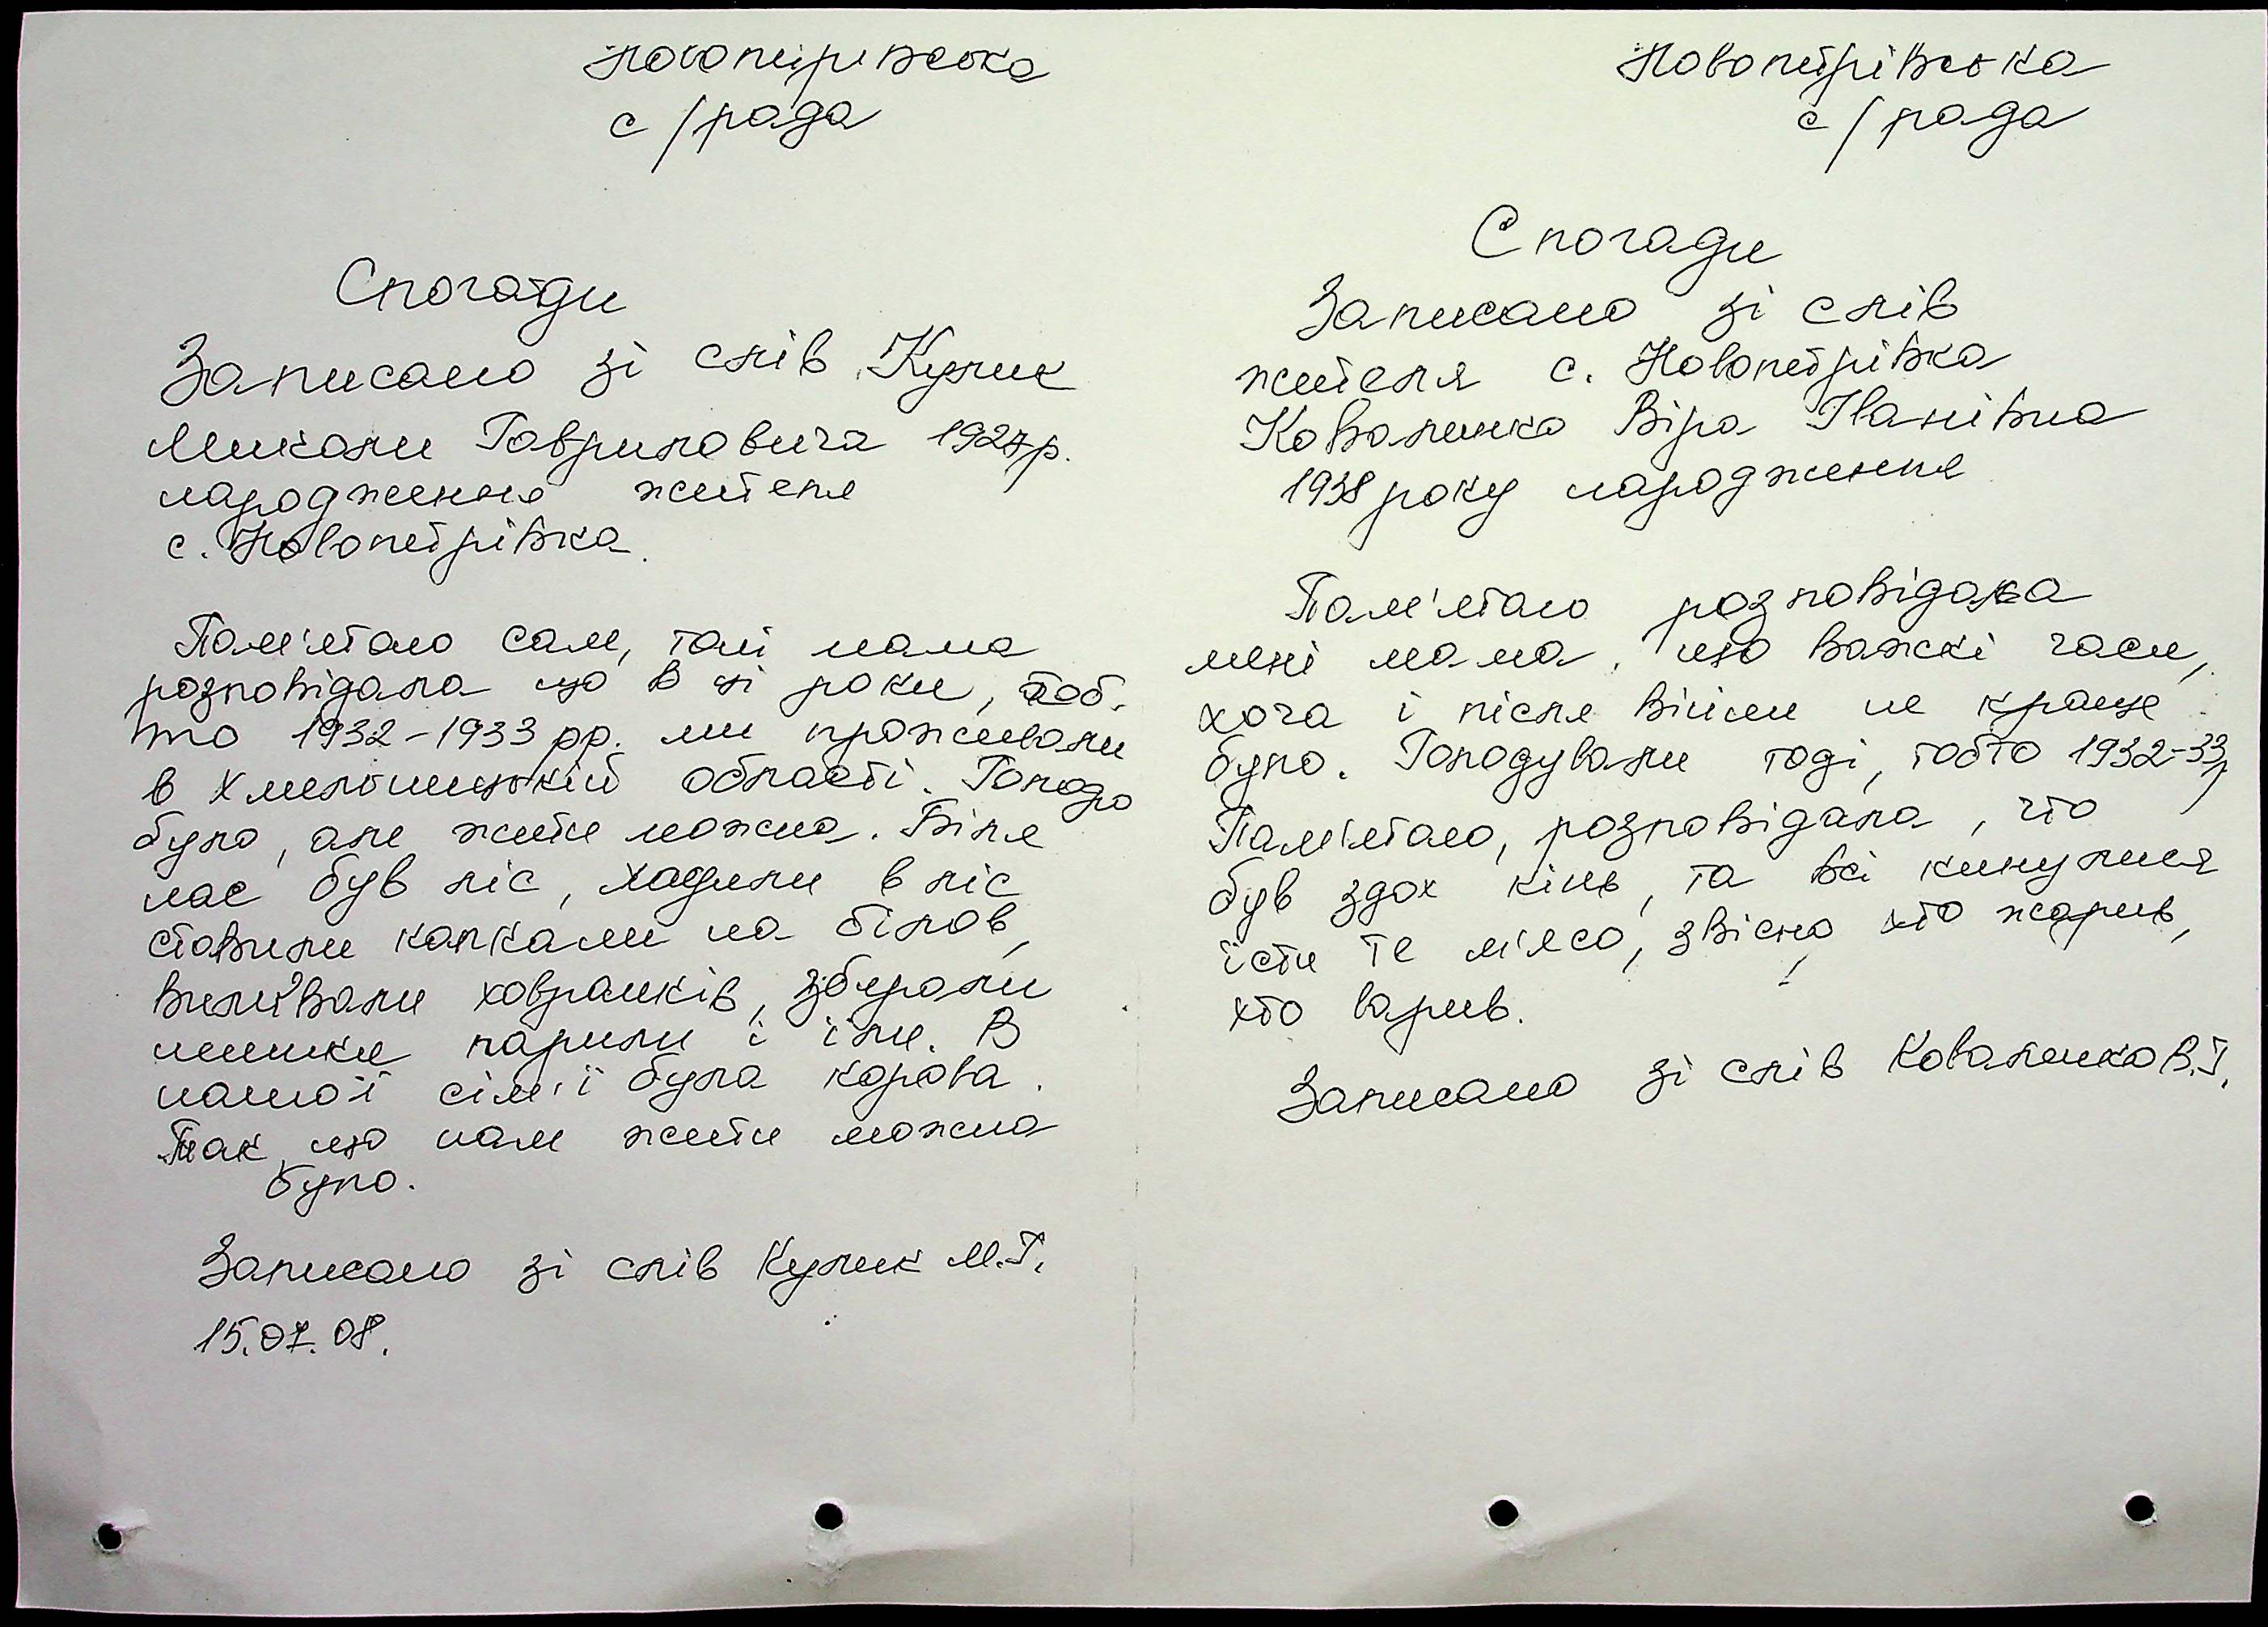 Новопетрівська
с/рада
Спогади
Записано зі слів Кулик
Миколи Гавриловича 1924р.
народження жителя
с. Новопетрівка.
Пам'ятаю сам, талі мама
розповідала що в ці роки, тоб-
то 1932-1933 рр. ми проживали
в Хмельницькій області. Голодо
було, але жити можна. Біля
нас був ліс, ходили в ліс
ставили капкани на білов,
виливали ховрашків, збирали
шишки парили і їли. В
нашої сім'ї була корова.
Так що нам жити можна
було.
Записано зі слів Кулик М.Г.
15.07.08.
Новопетрівська
с/рада
Спогади
Записано зі слів
жителя с. Новопетрівка
Коваленко Віра Іванівна
1938 року народження
Пам'ятаю розповідала
мені мама, що важкі часи,
хоча і після війни не краще
було. Голодували тоді, тобто 1932-33р
Пам'ятаю, розповідала, что
був здох кінь, та всі кинулися
їсти те м'ясо, звісно хто жарив,
хто варив.
Записано зі слів Коваленко В.І.